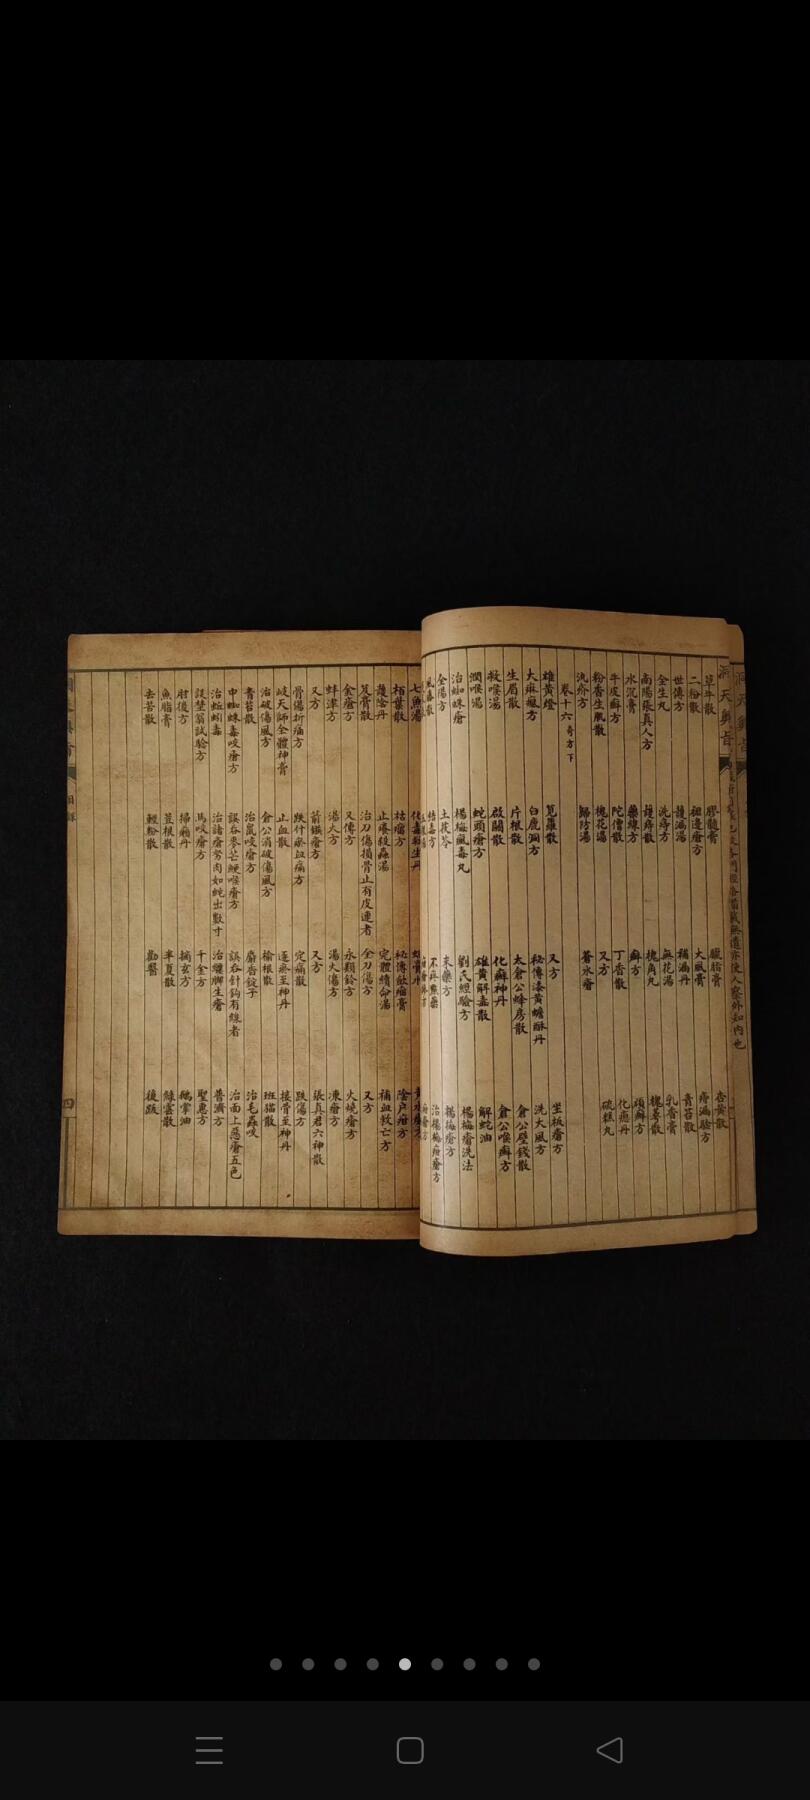 洞天奧旨
草牛散 膠髓膏 臘脂膏 杏黃散
二粉散 祖邊瘡方 大風膏 痔漏驗方
世傳方 護漏湯 補漏丹 青苔散
全生丸 洗痔方 無花湯 乳香膏
南陽張真人方 護痔散 槐角丸 槐萼散
水沉膏 藥線方 癬方 頑癬方
牛皮癬方 陀僧散 丁香散 化癋丹
粉香生肌散 槐花湯 又方 硫糕丸
氿疥方 歸防湯 蒼水瘡
卷十六 奇方下
雄黃燈 莧蘿散 又方 坐板瘡方
大麻瘋方 白鹿洞方 秘傳漆黃蟾酥丹 洗大風方
生眉散 片根散 太倉公蜂房散 倉公壁錢散
救喉湯 啟關散 化癬神丹 倉公喉癬方
潤喉湯 蛇頭瘡方 雄黃解毒散 解蛇油
治蜘蛛瘡 楊梅瘋毒丸 劉氏經驗方 楊梅瘡洗法
全陽方 土茯苓 末藥方 楊梅瘡方
不疼點藥 治楊梅疳瘡方
七魚湯 化毒救生丹
柏葉散 枯瘤方 秘傳斂瘤膏 陰戶疳方
護陰丹 止癢殺蟲湯 完體續命湯 補血救亡方
芨膏散 治刀傷損骨止有皮連者 金刀傷方 又方
金瘡方 又傳方 永類鈐方 火燒瘡方
蚌津方 湯火方 湯火傷方 凍瘡方
又方 箭鏃瘡方 又方 張真君六神散
骨傷折痛方 跌仆瘀血痛方 定痛散 跌傷方
岐天師全體神膏 止血散 逐瘀至神丹 接骨至神丹
治破傷風方 倉公消破傷風方 榆根散 班猫散
青苔散 治鼠咬瘡方 麝香錠子 治毛蟲咬
中蜘蛛毒咬瘡方 誤吞麥芒鯁喉瘡方 誤吞針鈎有線者 治面上惡瘡五色
治蚯蚓毒 治諸瘡努肉如蛇出數寸 治臁脚生瘡 普濟方
談埜翁試驗方 馬咬瘡方 千金方 聖惠方
肘後方 掃癬丹 摘玄方 鵝掌油
魚脂膏 荳根散 半夏散 綠雲散
去苦散 輕粉散 勸醫 後跋
目錄
四